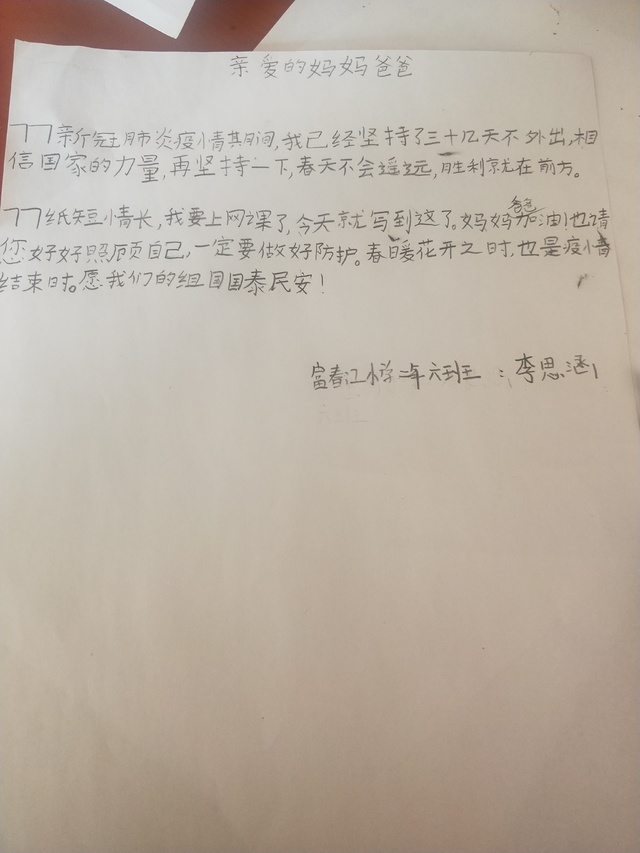 亲爱的妈妈爸爸
新冠肺炎疫情其间,我已经坚持了三十几天不外出,相
信国家的力量,再坚持一下,春天不会遥远,胜利就在前方。
纸短情长,我要上网课了,今天就写到这了。妈妈爸爸加油!也请
您好好照顾自己,一定要做好防护。春暖花开之时,也是疫情
结束时。愿我们的组国国泰民安!
富春江小学二年六班:李思涵